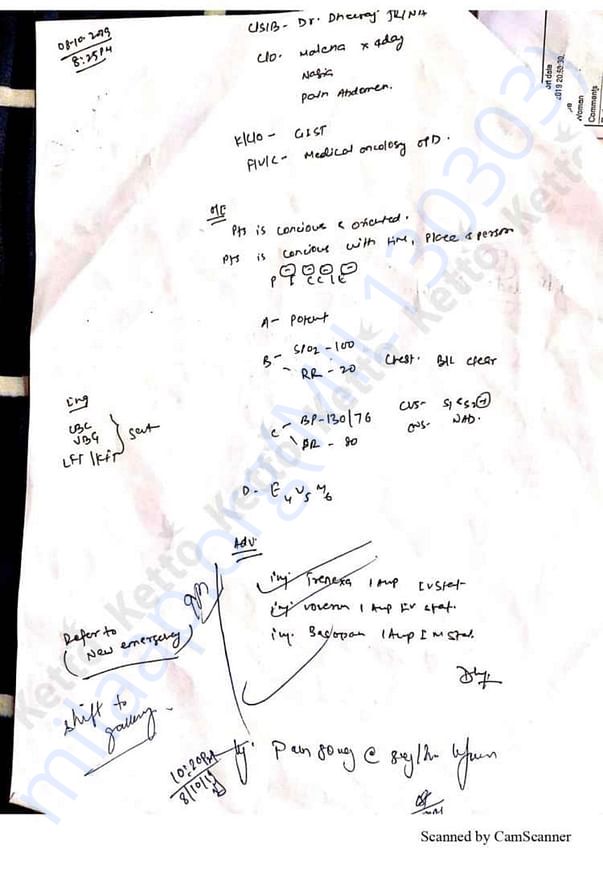 08-10-2019
8:25PM
C/S/B- Dr. Dheeraj JR/NA
C/o. malena x 4day
Pain Abdomen.
K/C/O - GIST
F/U/C- Medical oncology OPD.
O/E
Pts is concious & oriented.
Pts is concious with time, Place & person
P I C C L E
A- Patent
B- SPO2-100
- RR-20 Chest. B/L clear
C- BP-130/76 CVS- S1 & S2 +
PR - 80 CNS- NAD.
D- E4 V5 M6
Inv
CBC
VBG
LFT/KFT
Sent
Adv.
inj Trenexa 1 Amp IV Stat
inj voveran 1 Amp IV stat.
inj. Bascopan 1 Amp IM Stat.
Refer to
(New emergency)
Shift to
gallery.
10:20PM
8/10/19
inj. Pan 80mg @ 8mg/hr
ort date
2019 20:59:30
Woman
Comments
Ketto
milaap.org(MIL130303)
Scanned by CamScanner